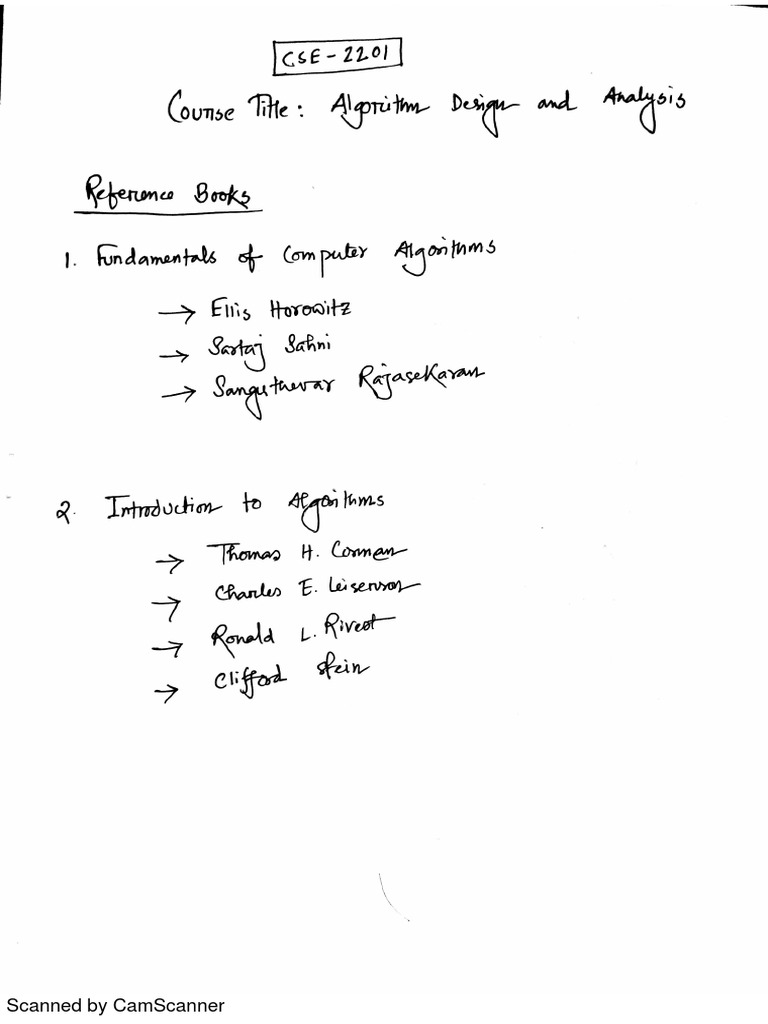 CSE-2201
Course Title: Algorithm Design and Analysis
Reference Books
1. Fundamentals of Computer Algorithms
→ Ellis Horowitz
→ Sartaj Sahni
→ Sanguthevar Rajasekaran
2. Introduction to Algorithms
→ Thomas H. Corman
→ Charles E. Leiserson
→ Ronald L. Rivest
→ Clifford Stein
Scanned by CamScanner